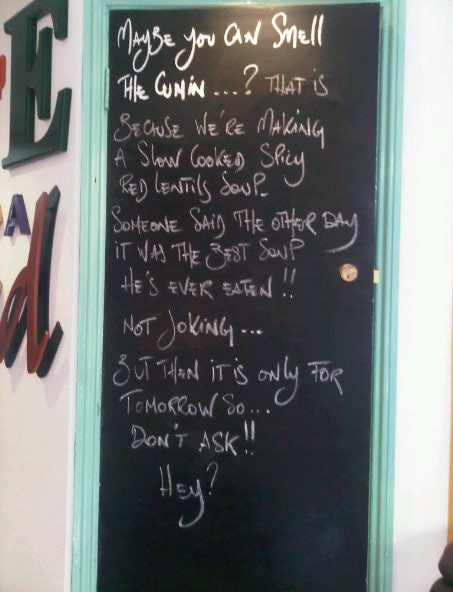 MAYBE YOU CAN SMELL
THE CUMIN ....? THAT IS
BECAUSE WE'RE MAKING
A SLOW COOKED SPICY
RED LENTILS SOUP_
SOMEONE SAID THE OTHER DAY
IT WAS THE BEST SOUP
HE'S EVER EATEN !!
NOT JOKING...
BUT THEN IT IS ONLY FOR
TOMORROW SO...
DON'T ASK!!
HEY?
E
A
d